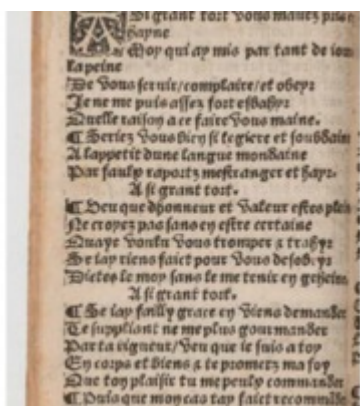 A Si grant tort vous mauez pris
hayne
A Moy qui ay mis par tant de iou
La peine
De vous seruir/complaire/et obeyr
Je ne me puis assez fort esbahyr
Quelle raison a ce faire vous maine.
¶ Seriez vous bien si legiere et soubdain
A lappetit dune langue mondaine
Par faulx raportz mestranger et hayr.
A si grant tort.
¶ Veu que dhonneur et valeur estes plein
Ne croyez pas sans en estre certaine
Quaye voulu vous tromper & trahyr
Se iay riens faict pour vous desobeyr
Dictes le moy sans le me tenir en geheine
A si grant tort.
¶ Se iay failly grace en viens demander
Te suppliant ne me plus gourmander
Par ta rigueur/veu que ie suis a toy
En corps et biens & te prometz ma foy
Que ton plaisir tu me peulx commander
¶ Puis que mon cas tay faict recommãde